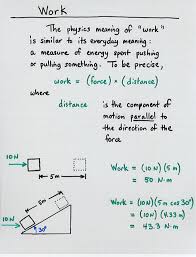 Work
The physics meaning of "work"
is similar to its everyday meaning:
a measure of energy spent pushing
or pulling something. To be precise,
work = (force) × (distance)
where
distance is the component of
motion parallel to
the direction of the
force
10N
5m
Work = (10N)(5m)
= 50 N·m
5m
10N
30°
Work = (10N)(5m cos30°)
= (10N)(4.33m)
= 43.3 N·m